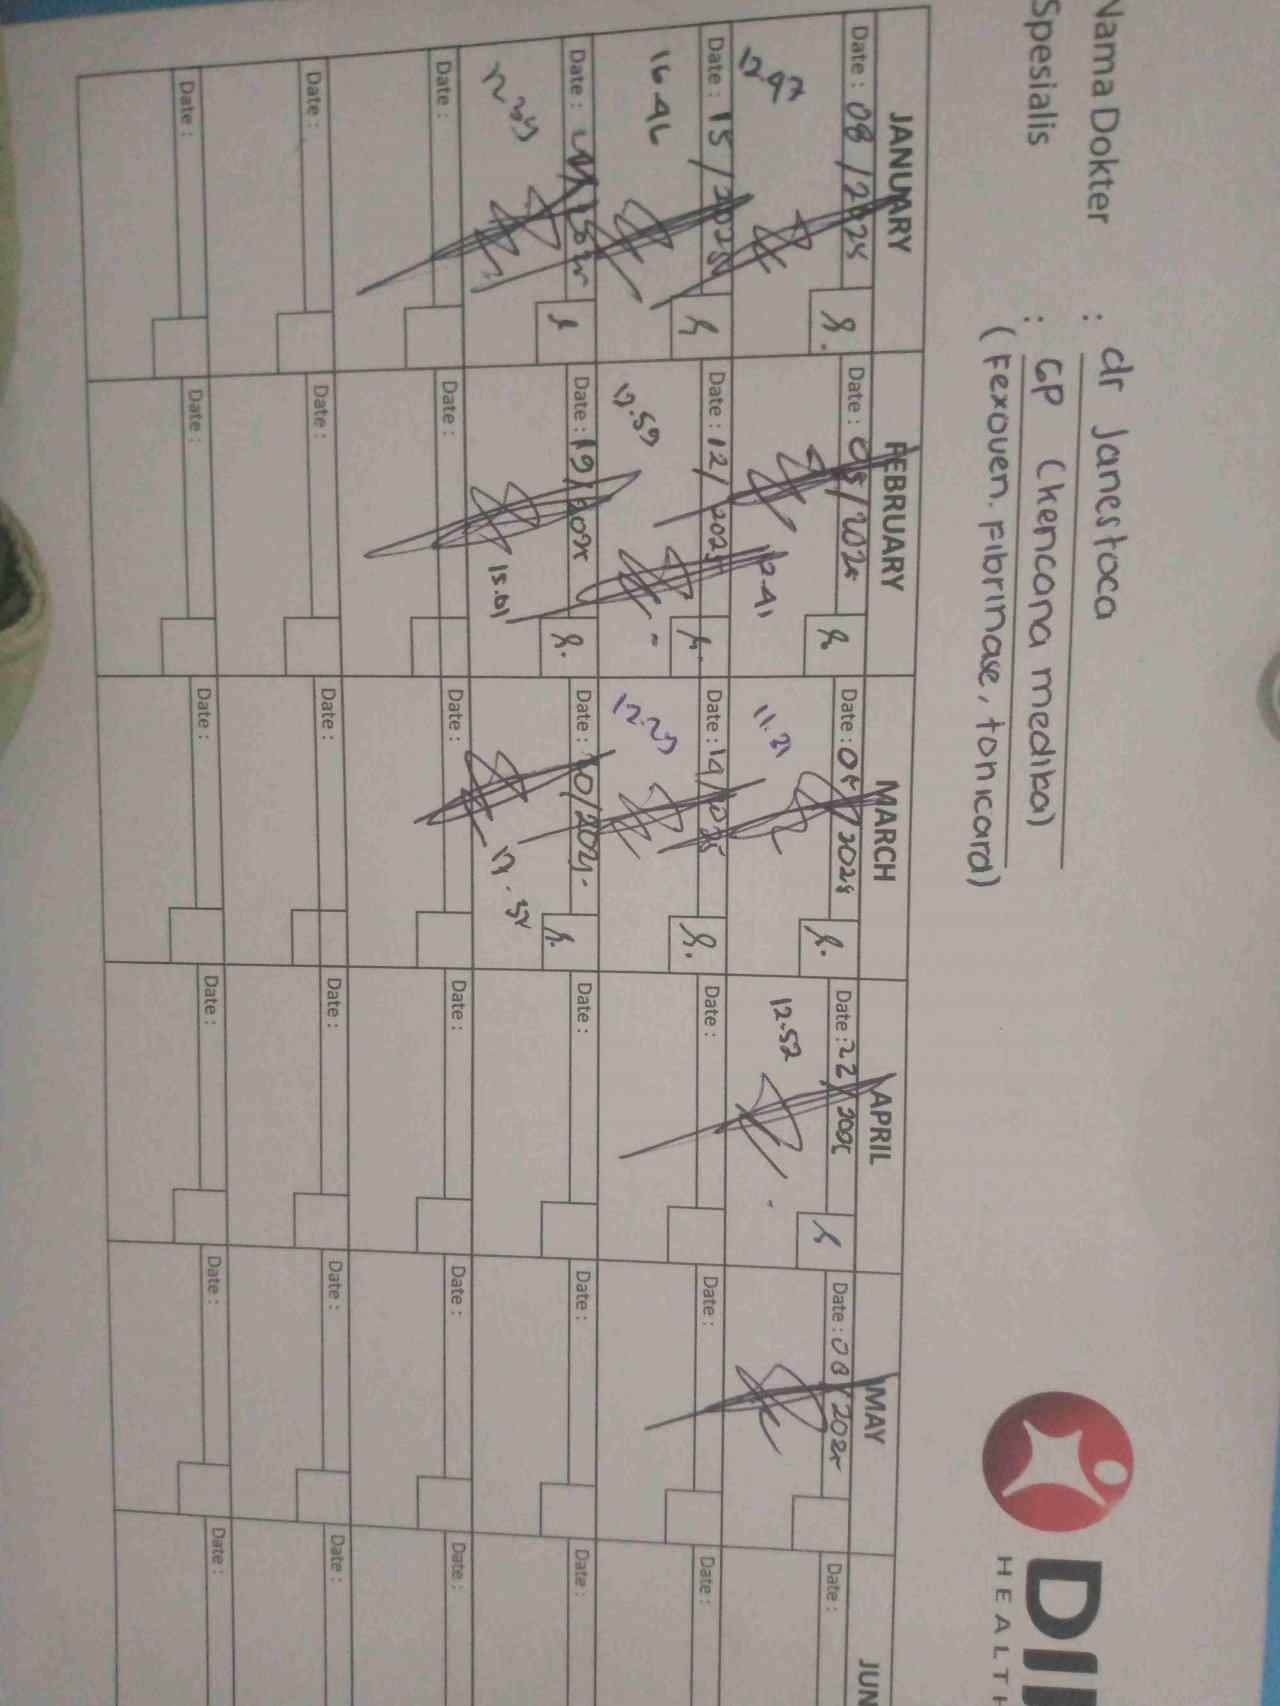 Nama Dokter : dr Janestoca
Spesialis : GP (kencana medika)
(Fexoven. Fibrinase, tonicard)
HEALTH
JANUARY FEBRUARY MARCH APRIL MAY JUN
Date : 08 / 2025 Date : 05 / 2025 Date : 05 / 2025 Date : 22 / 2025 Date : 06 / 2025 Date :
12.47 12.41 11.31 12.52
Date : 15 / 2025 Date : 12 / 2025 Date : 14 / 2025 Date : Date : Date :
16.46 17.59 12.29
Date : Date : 19 / 2025 Date : 20 / 2025. Date : Date : Date :
12.39 15.01 17.52
Date : Date : Date : Date : Date : Date :
Date : Date : Date : Date : Date : Date :
Date : Date : Date : Date : Date : Date :